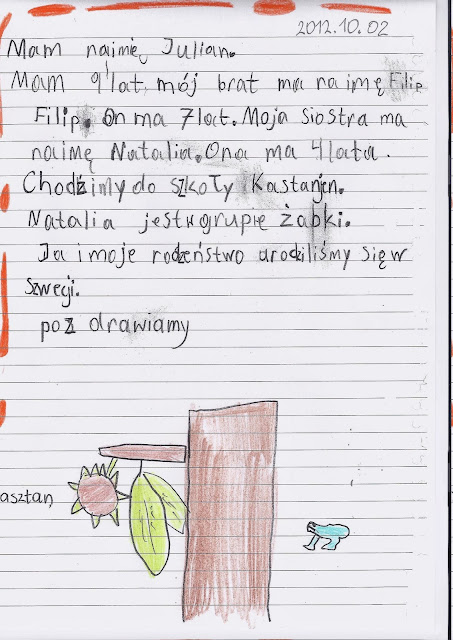 2012.10.02
Mam naimię Julian.
Mam 9 lat, mój brat ma na imę Filip
Filip. On ma 7 lat. Moja siostra ma
naimę Natalia. Ona ma 4 lata.
Chodzimy do szkoły Kastanjen.
Natalia jest w grupie żabki.
Ja i moje rodzeństwo urodziliśmy się w
Szwecji.
pozdrawiamy
asztan